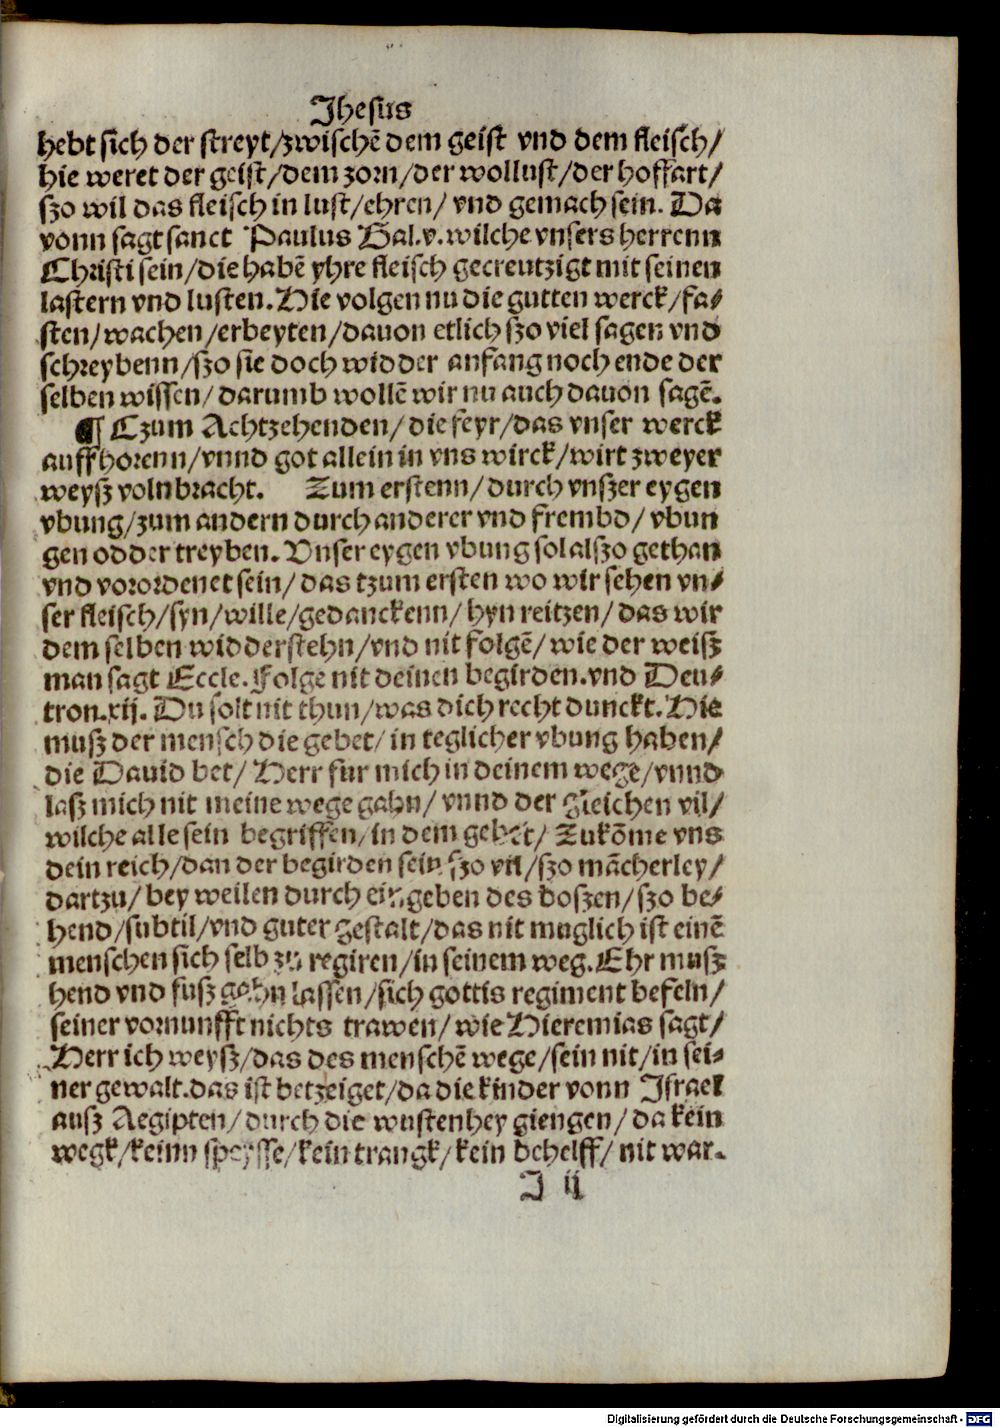 Jhesus
hebt sich der streyt/zwischē dem geist vnd dem fleisch/
hie weret der geist/dem zorn/der wollust/der hoffart/
szo wil das fleisch in lust/ehren/ vnd gemach sein. Da
vonn sagt sanct Paulus Gal.v.wilche vnsers herrenn
Christi sein/die habē yhre fleisch gecreutzigt mit seinen
lastern vnd lusten.Hie volgen nu die gutten werck/fa-
sten/wachen/erbeyten/dauon etlich szo viel sagen vnd
schreybenn/szo sie doch widder anfang noch ende der
selben wissen/ darumb wollē wir nu auch dauon sagē.
¶ Czum Achtzehenden/die feyr/das vnser werck
auffhorenn/vnnd got allein in vns wirck/wirt zweyer
weysz volnbracht. Zum erstenn/durch vnszer eygen
vbung/zum andern durch anderer vnd frembd/ vbun
gen odder treyben. Vnser eygen vbung sol alszo gethan
vnd vorordenet sein/ das tzum ersten wo wir sehen vn-
ser fleisch/syn/wille/gedanckenn/ hyn reitzen/ das wir
dem selben widderstehn/vnd nit folgē/ wie der weisz
man sagt Eccle. Folge nit deinen begirden.vnd Deu-
tron.xij. Du solt nit thun/was dich recht dunckt.Hie
musz der mensch die gebet/ in teglicher vbung haben/
die Dauid bet/ Herr fur mich in deinem wege/vnnd
lasz mich nit meine wege gahn/ vnnd der gleichen vil/
wilche alle sein begriffen/in dem gebet/ Zukōme vns
dein reich/dan der begirden sein szo vil/szo mācherley/
dartzu/ bey weilen durch eingeben des boszen/szo be-
hend/subtil/vnd guter gestalt/das nit muglich ist einē
menschen sich selb zu regiren/in seinem weg.Ehr musz
hend vnd fusz gahn lassen/sich gottis regiment befeln/
seiner vornunfft nichts trawen/wie Hieremias sagt/
Herr ich weysz/das des menschē wege/sein nit/in sei-
ner gewalt.das ist betzeiget/da die kinder vonn Jsrael
ausz Aegipten/durch die wustenhey giengen/ da kein
wegk/keinn speysse/kein trangk/kein behelff/ nit war.
J ij
Digitalisierung gefördert durch die Deutsche Forschungsgemeinschaft - DFG